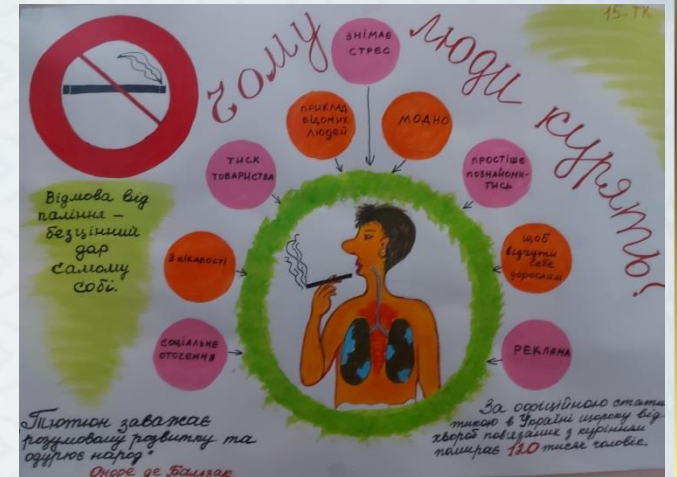 15-ТК
Чому люди курять!
ЗНІМАЄ
СТРЕС
ПРИКЛАД
ВІДОМИХ
ЛЮДЕЙ
МОДНО
ТИСК
ТОВАРИСТВА
ПРОСТІШЕ
ПОЗНАЙОМИ-
ТИСЬ
З ЦІКАВОСТІ
ЩОБ
ВІДЧУТИ
СЕБЕ
ДОРОСЛИМ
СОЦІАЛЬНЕ
ОТОЧЕННЯ
РЕКЛАМА
Відмова від
паління –
безцінний
дар
самому
собі.
"Тютюн заважає
розумовому розвитку та
одурює народ"
Оноре де Бальзак
За офіційною статис
тикою в Україні щороку від
хвороб пов'язаних з курінням
помирає 120 тисяч чоловік.